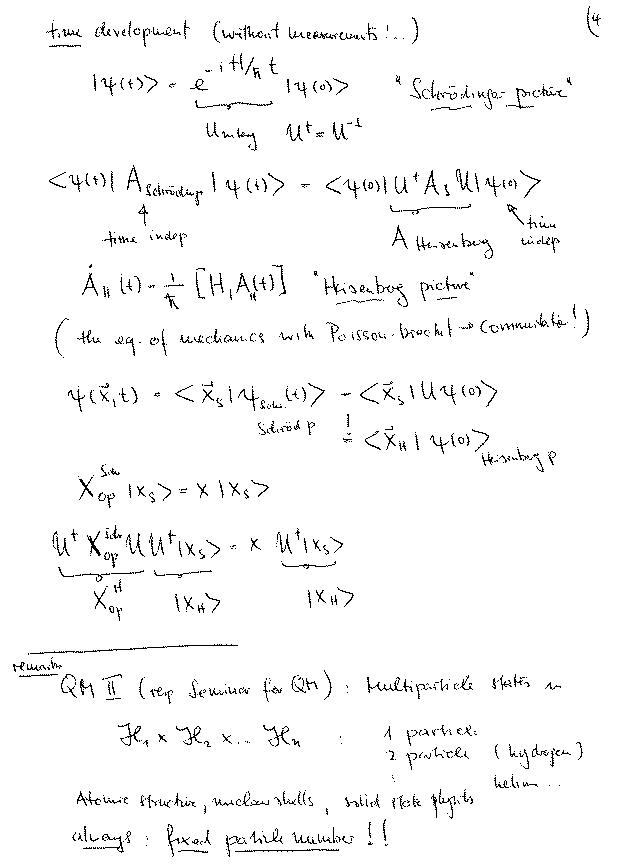 (4
time development (without measurements!..)
|ψ(t)> = e^{-iH/ħ t} |ψ(0)> "Schrödinger picture"
Unitary U† = U⁻¹
<ψ(t)| A_Schrödinger |ψ(t)> = <ψ(0)| U† A_S U |ψ(0)>
time indep A Heisenberg time indep
Ȧ_H(t) = 1/ħ [H, A_H(t)] "Heisenberg picture"
(the eq. of mechanics with Poisson-bracket → Commutator!)
ψ(x⃗,t) = <x⃗_S|ψ_Schr.(t)> = <x⃗_S|U ψ(0)>
Schröd p != <x⃗_H|ψ(0)> Heisenberg p
X_op^Sch |x_S> = x |x_S>
U† X_op^Sch U U†|x_S> = x U†|x_S>
X_op^H |x_H> |x_H>
remark
QM II (resp Seminar for QM): Multiparticle states in
ℋ₁ × ℋ₂ × ... ℋₙ : 1 particle
2 particle (hydrogen)
: helium ..
Atomic structure, nuclear shells, solid state physics
always: fixed particle number!!